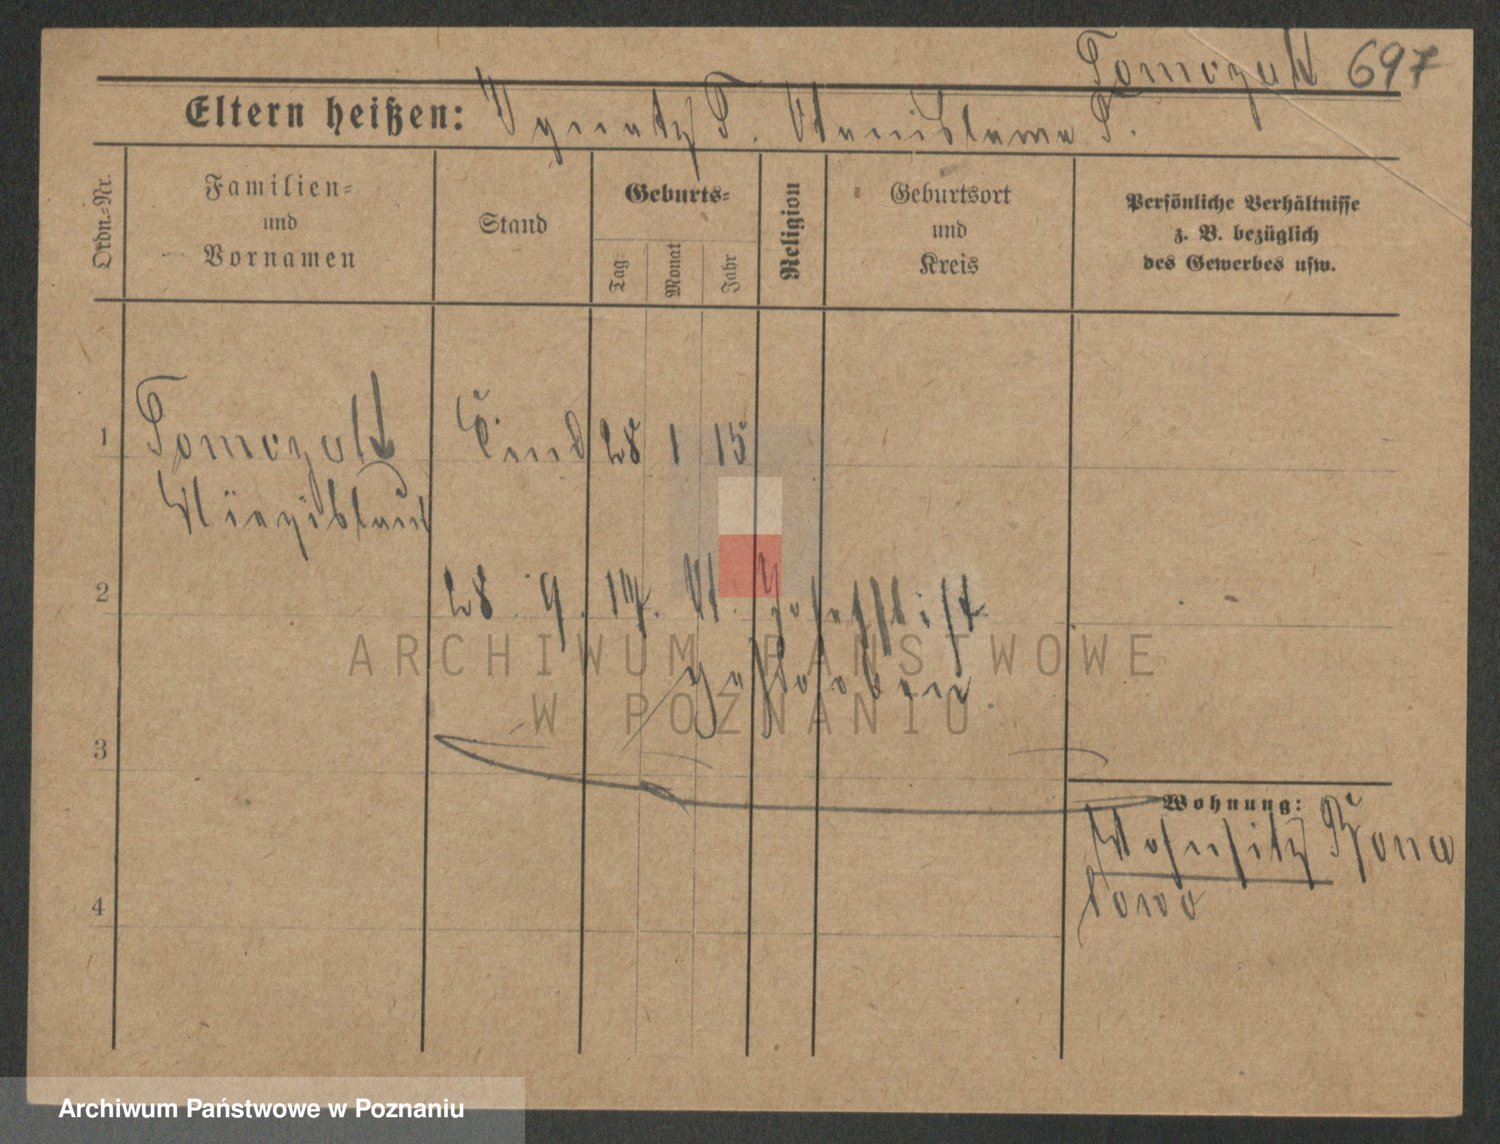 Tomczak 697
Eltern heißen: Ignatz T. Stanislawa T.
Ordn.=Nr.
Familien=
und
Vornamen
Stand
Geburts=
Tag
Monat
Jahr
Religion
Geburtsort
und
Kreis
Persönliche Verhältnisse
z. B. bezüglich
des Gewerbes usw.
1 Tomczak Kind 28 1 15
2 28. 9. 17. St. Josephstift
ARCHIWUM PAŃSTWOWE
W POZNANIU
3
Wohnung:
Wohnsitz
4
Archiwum Państwowe w Poznaniu